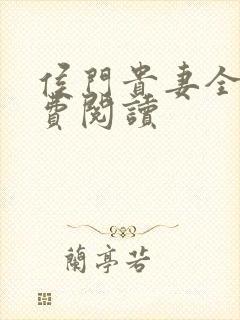 侯門貴妻全
費閱讀
蘭亭若